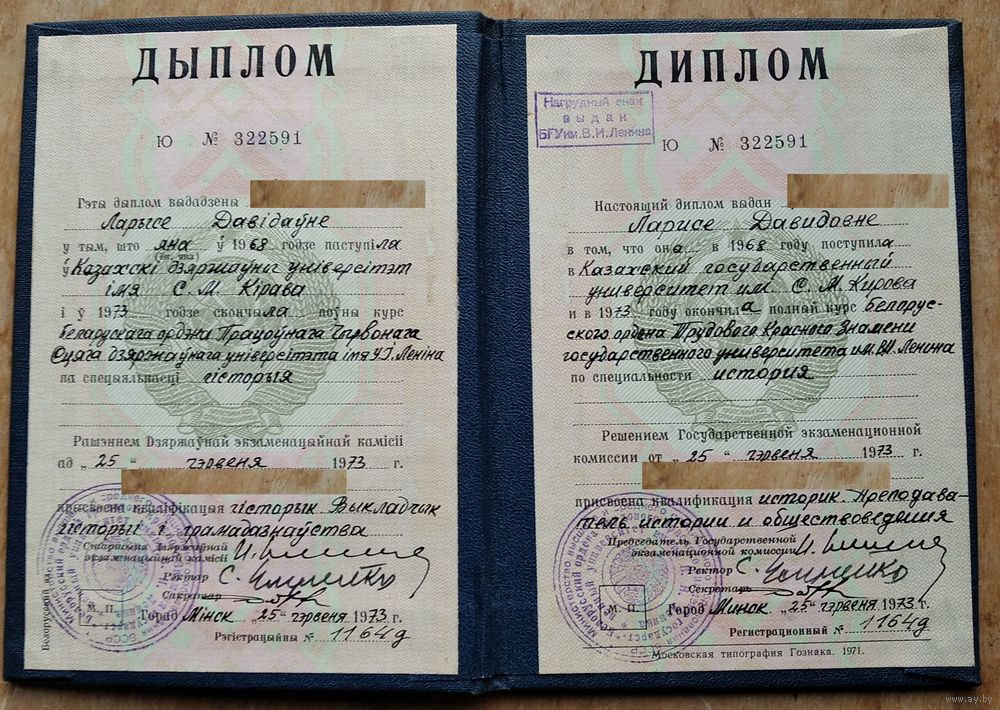 ДЫПЛОМ
Ю № 322591
Гэты дыплом выдадзены
Ларысе Давідаўне
у тым, што яна ў 1968 годзе паступіла
(ён, яна)
ў Казахскі дзяржаўны універсітэт
імя С. М. Кірава
і ў 1973 годзе скончыла поўны курс
Беларускага ордэна Працоўнага Чырвонага
Сцяга дзяржаўнага універсітэта імя У.І. Леніна
па спецыяльнасці гісторыя
Рашэннем Дзяржаўнай экзаменацыйнай камісіі
ад „25“ чэрвеня 1973 г.
прысвоена кваліфікацыя гісторык. Выкладчык
гісторыі і грамадазнаўства
Старшыня Дзяржаўнай
экзаменацыйнай камісіі
Рэктар
Сакратар
М. П. Горад Мінск „25“ чэрвеня 1973 г.
Рэгістрацыйны № 1164д
ДИПЛОМ
Нагрудный знак
выдан
БГУ им. В.И. Ленина
Ю № 322591
Настоящий диплом выдан
Ларисе Давидовне
в том, что она в 1968 году поступила
в Казахский государственный
университет им. С. М. Кирова
и в 1973 году окончила полный курс Белорус-
ского ордена Трудового Красного Знамени
государственного университета им. В.И. Ленина
по специальности история
Решением Государственной экзаменационной
комиссии от „25“ чэрвеня 1973 г.
присвоена квалификация историк. Преподава-
тель истории и обществоведения
Председатель Государственной
экзаменационной комиссии
Ректор
Секретарь
М. П. Город Минск „25“ чэрвеня 1973 г.
Регистрационный № 1164д
Московская типография Гознака. 1971.
www.ay.by